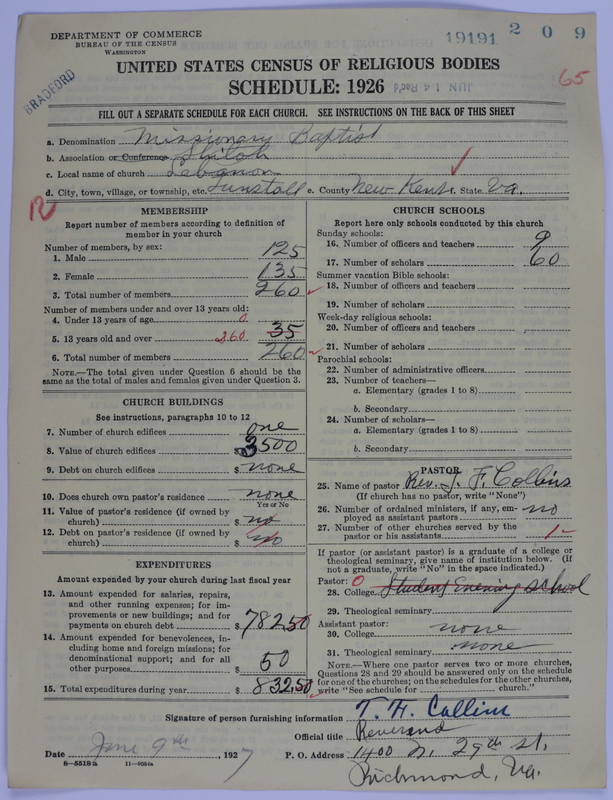 DEPARTMENT OF COMMERCE
BUREAU OF THE CENSUS
WASHINGTON
19191 2 0 9
BRADFORD
UNITED STATES CENSUS OF RELIGIOUS BODIES
SCHEDULE: 1926
JUN 14 Rec'd
65
FILL OUT A SEPARATE SCHEDULE FOR EACH CHURCH. SEE INSTRUCTIONS ON THE BACK OF THIS SHEET
a. Denomination Missionary Baptist
b. Association or Conference Shiloh
c. Local name of church Lebanon
d. City, town, village, or township, etc. Tunstall e. County New Kent f. State Va.
MEMBERSHIP
Report number of members according to definition of
member in your church
Number of members, by sex:
1. Male 125
2. Female 135
3. Total number of members 260
Number of members under and over 13 years old:
4. Under 13 years of age 0
5. 13 years old and over 260 35
6. Total number of members 260
NOTE.—The total given under Question 6 should be
same as the total of males and females given under Question 3.
CHURCH BUILDINGS
See instructions, paragraphs 10 to 12
7. Number of church edifices one
8. Value of church edifices $ 3500
9. Debt on church edifices $ none
10. Does church own pastor's residence none
Yes or No
11. Value of pastor's residence (if owned by
church) $ no
12. Debt on pastor's residence (if owned by
church) $ no
EXPENDITURES
Amount expended by your church during last fiscal year
13. Amount expended for salaries, repairs,
and other running expenses; for im-
provements or new buildings; and for
payments on church debt $ 782.50
14. Amount expended for benevolences, in-
cluding home and foreign missions; for
denominational support; and for all
other purposes $ 50
15. Total expenditures during year $ 832.50
CHURCH SCHOOLS
Report here only schools conducted by this church
Sunday schools:
16. Number of officers and teachers 9
17. Number of scholars 60
Summer vacation Bible schools:
18. Number of officers and teachers
19. Number of scholars
Week-day religious schools:
20. Number of officers and teachers
21. Number of scholars
Parochial schools:
22. Number of administrative officers
23. Number of teachers—
a. Elementary (grades 1 to 8)
b. Secondary
24. Number of scholars—
a. Elementary (grades 1 to 8)
b. Secondary
PASTOR
25. Name of pastor Rev. J. F. Collins
(If church has no pastor, write "None")
26. Number of ordained ministers, if any, em-
ployed as assistant pastors no
27. Number of other churches served by the
pastor or his assistants 1
If pastor (or assistant pastor) is a graduate of a college or
theological seminary, give name of institution below. (If
not a graduate, write "No" in the space indicated.)
Pastor: 0
28. College Student Evening school
29. Theological seminary
Assistant pastor:
30. College none
31. Theological seminary none
NOTE.—Where one pastor serves two or more churches,
Questions 28 and 29 should be answered only on the schedule
for one of the churches; on the schedules for the other churches,
write "See schedule for church."
Signature of person furnishing information T. H. Collins
Official title Reverend
Date June 9th, 1927 P. O. Address 1400 N. 29th st,
8—5518a 11—9054a
Richmond, Va.